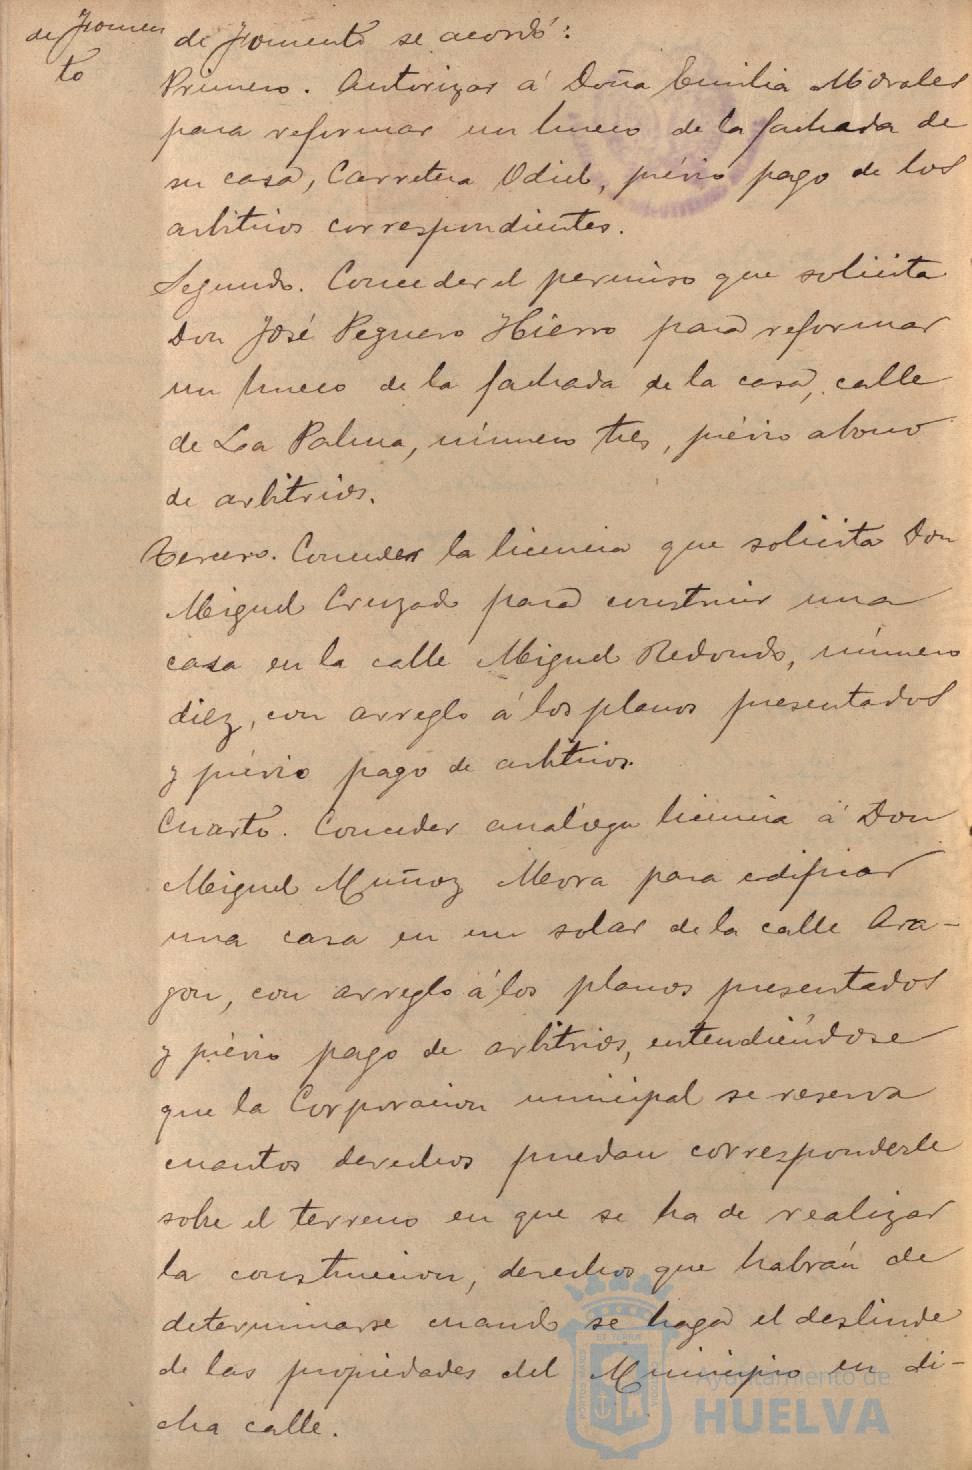 de Fomen
to
de Fomento se acordó:
Primero. Autorizar á Doña Emilia Morales
para reformar un hueco de la fachada de
su casa, Carretera Odiel, prévio pago de los
arbitrios correspondientes.
Segundo. Conceder el permiso que solicita
Don José Peguero Hierro para reformar
un hueco de la fachada de la casa, calle
de La Palma, número tres, prévio abono
de arbitrios.
Tercero. Conceder la licencia que solicita Don
Miguel Cruzado para construir una
casa en la calle Miguel Redondo, número
diez, con arreglo á los planos presentados
y prévio pago de arbitrios.
Cuarto. Conceder análoga licencia á Don
Miguel Muñoz Mora para edificar
una casa en un solar de la calle Ara-
gon, con arreglo á los planos presentados
y prévio pago de arbitrios, entendiéndose
que la Corporacion municipal se reserva
cuantos derechos puedan corresponderle
sobre el terreno en que se ha de realizar
la construccion, derechos que habrán de
determinarse cuando se haga el deslinde
de las propiedades del Municipio en di-
cha calle.
Ayuntamiento de
HUELVA